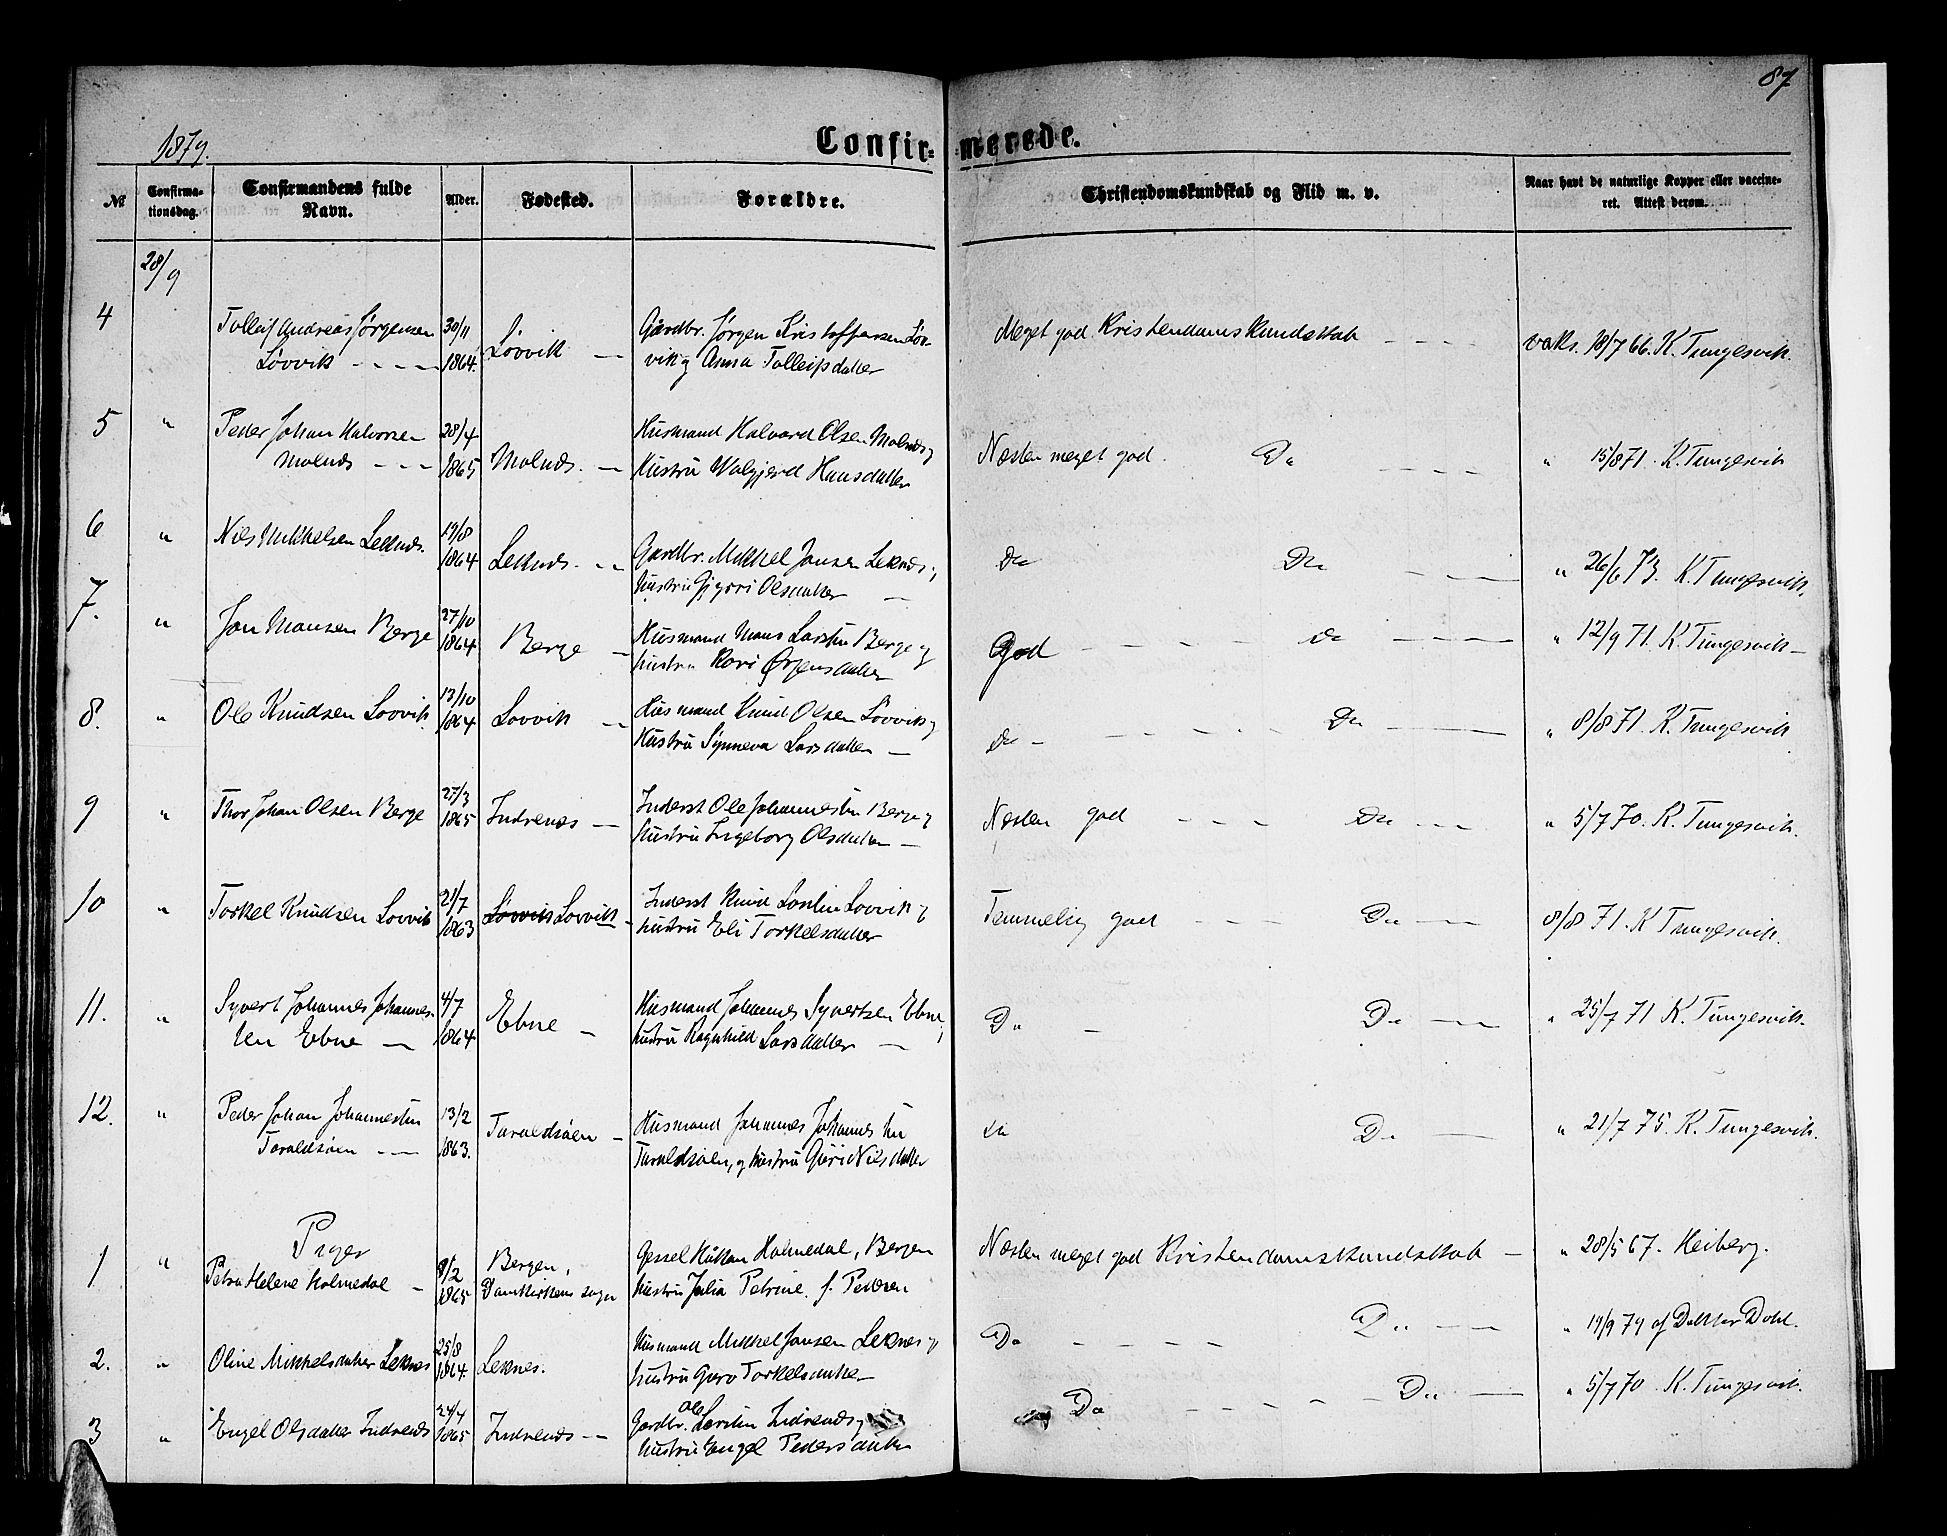 87
1879.
Confir- merede.
№ Confirma-tionsdag. Confirmandens fulde Navn. Alder. Fødested. Forældre. Christendomskundskab og Flid m. v. Naar havt de naturlige Kopper eller vaccine-ret. Attest derom.
28/9
4 Tolleif Andreas Jørgensen 30/11 Gårdbr. Jørgen Kristoffersen Løv-
Løvvik 1864. Løvvik vik og Anna Tolleifsdatter Meget god Kristendomskundskab vaks. 18/7 66. K. Tungesvik.
5 " Peder Johan Halvorsen 28/4 Husmand Halvard Olsen Molnæs og
Molnæs 1865 Molnæs. Hustru Valgjerd Hansdatter Næsten meget god. Do " 15/8 71. K. Tungesvik
6 " Nils Mikkelsen Leknæs. 19/8
1864 Leknæs. Gardbr. Mikkel Jansen Leknæs,
hustru Olsdatter Do Do " 26/6 73. K. Tungesvik.
7. " Jon Mansen Berge 27/10
1864 Berge Husmand Mans Larsen Berge og
hustru Kari Ørjansdatter God do " 12/9 71. K. Tungesvik
8. " Ole Knudsen Lovvik 13/10
1864 Lovvik Husmand Knud Olsen Lovvik og
Hustru Synneva Larsdatter Do Do " 8/8 71. K. Tungesvik
9 " Thor Johan Olsen Berge 27/3
1865 Indrenæs Inderst Ole Johannessen Berge og
hustru Ingeborg Olsdatter Næsten god Do " 5/7 70. K. Tungesvik.
10 " Torkel Knudsen Lovvik 21/7
1863 Løvvik Lovvik Inderst Knud Lovvik og
hustru Eli Torkelsdatter Temmelig god Do 8/8 71. K Tungesvik.
11. " Syvert Johannes Johannes- 4/7
sen Ebne 1864 Ebne Husmand Johannes Syvertsen Ebne,
hustru Ragnhild Larsdatter Do Do " 25/7 71 K. Tungesvik.
12. " Peder Johan Johannessen 13/2
Taraldsøen 1863. Taraldsøen Husmand Johannes Johannessen
Taraldsøen, og hustru Guri Nilsdatter do Do " 21/7 75. K. Tungesvik.
Piger
1 " Petra Helene Holmedal 9/2
1865 Bergen,
Domkirkens sogn Håkon Holmedal, Bergen
hustru Julia Petrine f. Pedersen Næsten meget god Kristendomskundskab " 28/5 67. Heiberg.
2. " Oline Mikkelsdatter Leknes 25/8
1864. Leknes. Husmand Mikkel Jansen Leknes og
hustru Guro Torkelsdatter Do Do " 19/9 79 af Doktor Dahl.
3 " Engel Olsdatter Indrenæs 24/4
1865 Indrenæs Gardbr. Ole Larsen Indrenæs og
hustru Engel Pedersdatter Do Do " 5/7 70 K. Tungesvik.